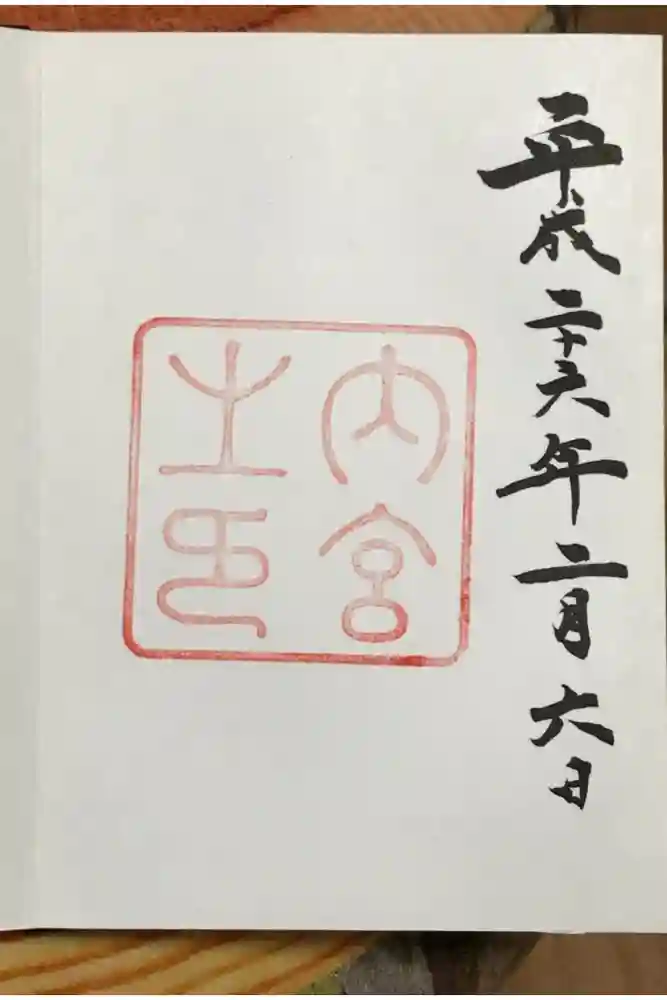 平成二十六年二月六日
内宮
之印